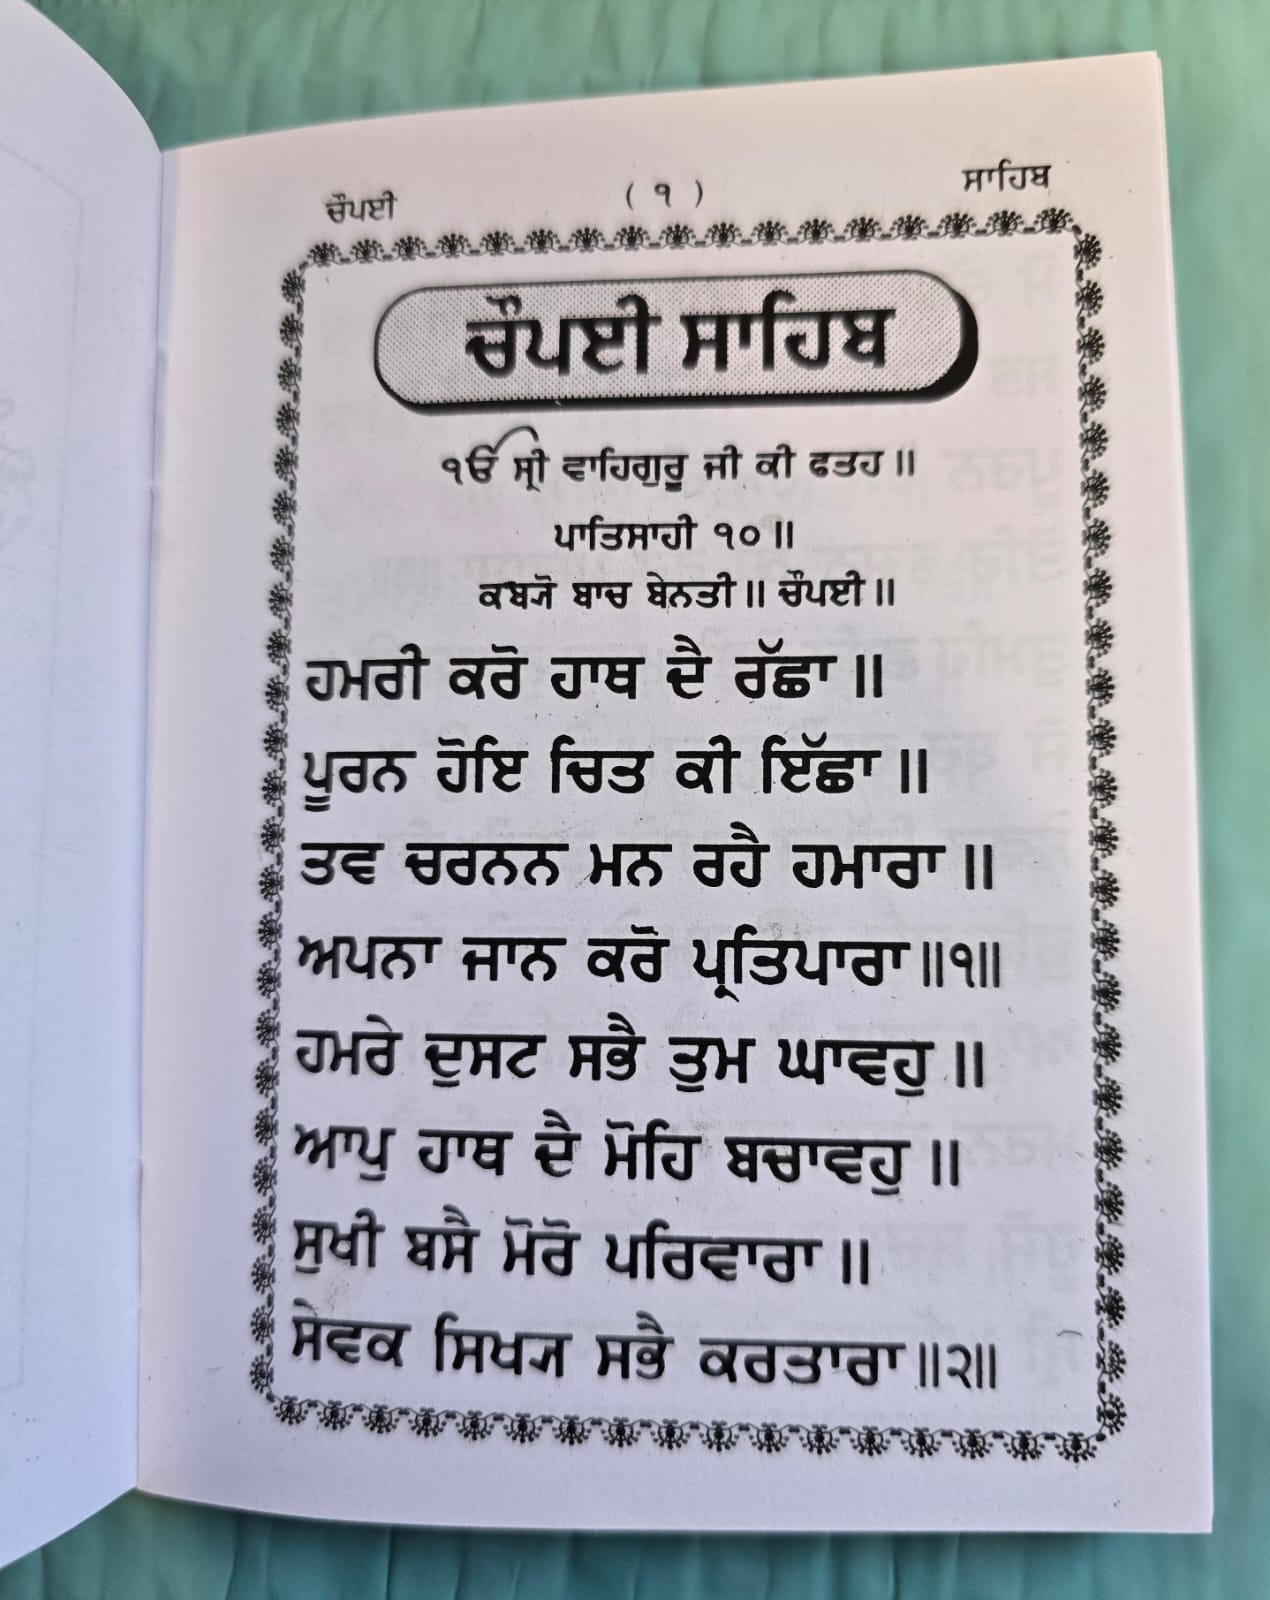 ਚੌਪਈ ( ੧ ) ਸਾਹਿਬ
ਚੌਪਈ ਸਾਹਿਬ
ੴ ਸ੍ਰੀ ਵਾਹਿਗੁਰੂ ਜੀ ਕੀ ਫਤਹ ॥
ਪਾਤਿਸਾਹੀ ੧੦ ॥
ਕਬ੍ਯੋ ਬਾਚ ਬੇਨਤੀ ॥ ਚੌਪਈ ॥
ਹਮਰੀ ਕਰੋ ਹਾਥ ਦੈ ਰੱਛਾ ॥
ਪੂਰਨ ਹੋਇ ਚਿਤ ਕੀ ਇੱਛਾ ॥
ਤਵ ਚਰਨਨ ਮਨ ਰਹੈ ਹਮਾਰਾ ॥
ਅਪਨਾ ਜਾਨ ਕਰੋ ਪ੍ਰਤਿਪਾਰਾ ॥੧॥
ਹਮਰੇ ਦੁਸਟ ਸਭੈ ਤੁਮ ਘਾਵਹੁ ॥
ਆਪੁ ਹਾਥ ਦੈ ਮੋਹਿ ਬਚਾਵਹੁ ॥
ਸੁਖੀ ਬਸੈ ਮੋਰੋ ਪਰਿਵਾਰਾ ॥
ਸੇਵਕ ਸਿਖ੍ਯ ਸਭੈ ਕਰਤਾਰਾ ॥੨॥